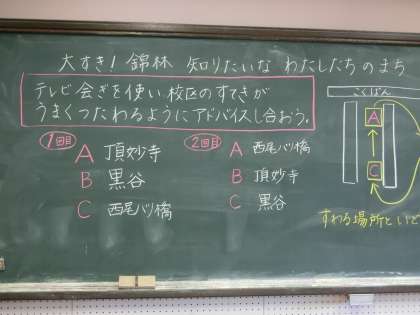 大すき！錦林 知りたいな わたしたちのまち
テレビ会ぎを使い、校区のすてきが
うまくつたわるようにアドバイスし合おう。
1回目
A 頂妙寺
B 黒谷
C 西尾八ツ橋
2回目
A 西尾八ツ橋
B 頂妙寺
C 黒谷
こくばん
A
C
すわる場所といど